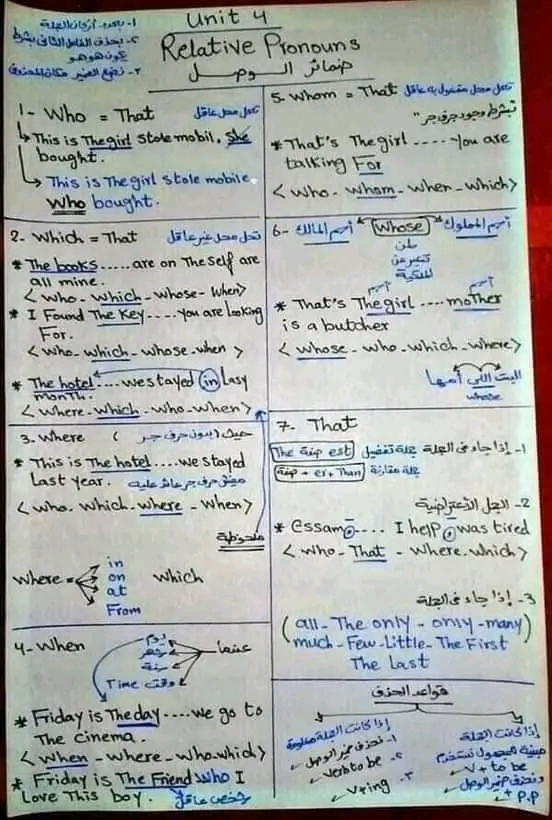 Unit 4
Relative Pronouns
ضمائر الوصل
١- يربط أركان الجملة
٢- يحذف الفاعل الثاني بشرط
يكون هو هو
٣- نضع الضمير مكان المحذوف
1- Who = That تحل محل عاقل
This is The girl stole mobil, she
bought.
This is The girl stole mobile
who bought.
2. Which = That تحل محل غير عاقل
* The books ..... are on The self are
all mine.
< who - which - whose - when >
* I Found The Key .... you are looking
For.
< who - which - whose - when >
* The hotel .... we stayed in lasy
month.
< where - which - who - when >
3. Where ( حيث ( بدون حرف جر
* This is The hotel .... we stayed
Last year.
< who. which - where - when >
ملحوظة
where = in on at From which
4- When عندما
يوم
شهر
سنة
وقت Time
* Friday is The day .... we go to
The cinema.
< when - where - who - which >
* Friday is The Friend who I
Love This boy. شخص عاقل
5. Whom = That تحل محل مفعول به عاقل
"بشرط وجود حرف جر"
* That's The girl .... you are
talking For
< who - whom - when - which >
6- اسم المالك whose اسم المملوك
ملك
تعبر عن
الملكية
اسم اسم
* That's The girl .... moTher
is a butcher
< whose - who - which - where >
البنت اللي أمها
whose
7. That
١- إذا جاء في الجملة جملة تفضيل The صفة est
جملة مقارنة صفة + er + Than
٢- الجمل الأعتراضية
* Essam, .... I help, was tired
< who - That - where. which >
٣- إذا جاء في الجملة
( all - The only - only - many
much - Few - Little - The First
The last )
قواعد الحذف
إذا كانت الجملة معلومة
١- نحذف ضمير الوصل
٢- verb to be
٣- V + ing
إذا كانت الجملة
مبنية للمجهول نستخدم
V. to be
ونحذف ضمير الوصل
+ P.P